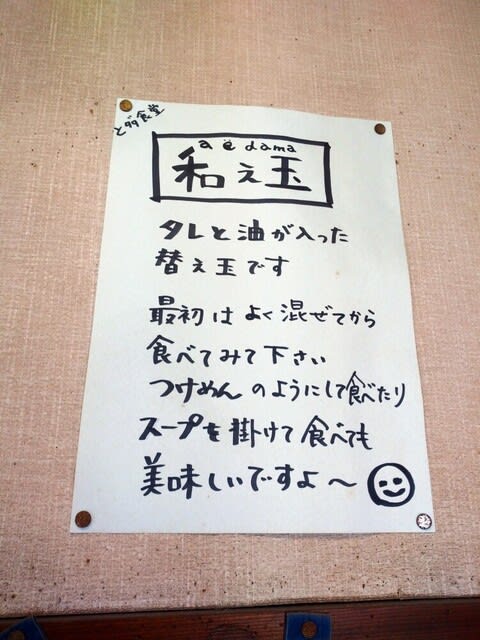 どゞ食堂
aēdama
和え玉
タレと油が入った
替え玉です
最初はよく混ぜてから
食べてみて下さい
つけめんのようにして食べたり
スープを掛けて食べても
美味しいですよ〜